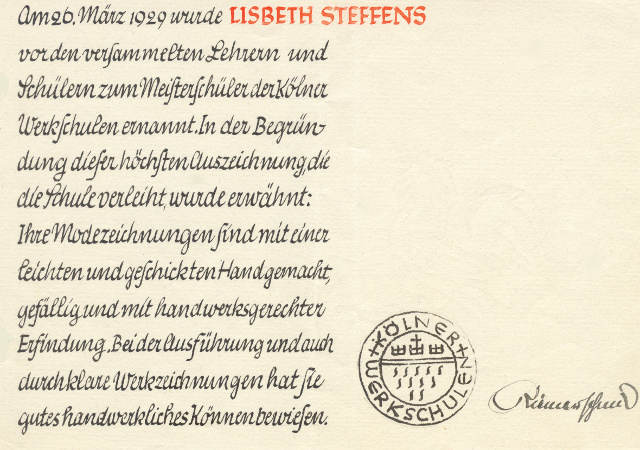 Am 26. März 1929 wurde LISBETH STEFFENS
vor den versammelten Lehrern und
Schülern zum Meisterschüler der Kölner
Werkschulen ernannt. In der Begrün-
dung dieser höchsten Auszeichnung, die
die Schule verleiht, wurde erwähnt:
Ihre Modezeichnungen sind mit einer
leichten und geschickten Hand gemacht,
gefällig und mit handwerksgerechter
Erfindung. Bei der Ausführung und auch
durch klare Werkzeichnungen hat sie
gutes handwerkliches Können bewiesen.
KÖLNER WERKSCHULEN
Riemerschmid